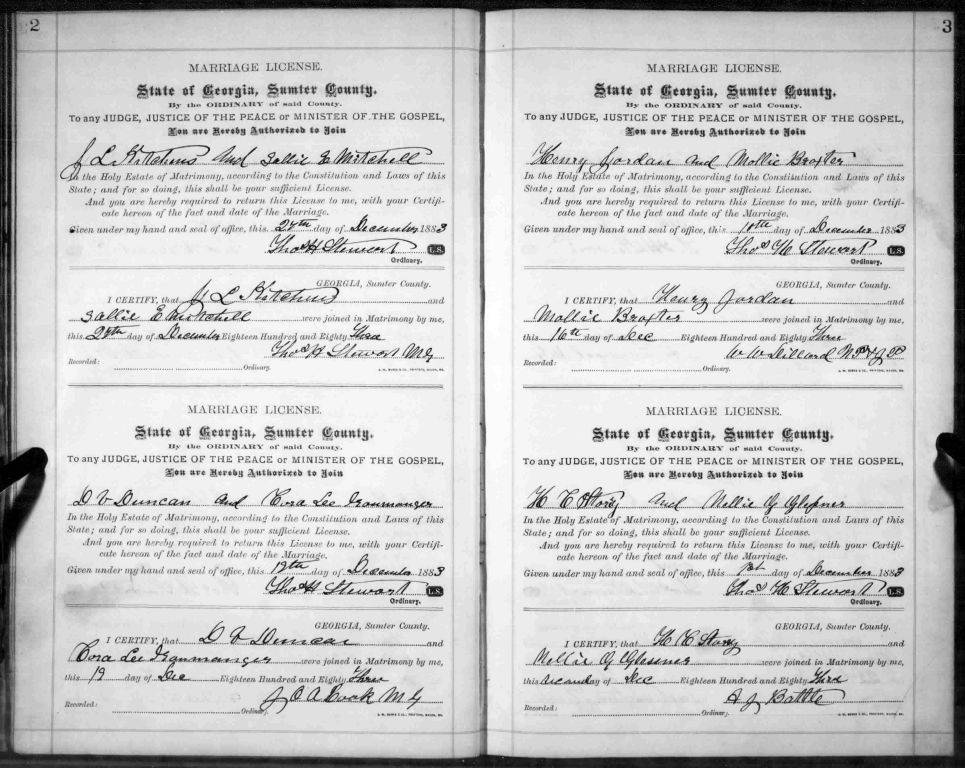 2
MARRIAGE LICENSE.
State of Georgia, Sumter County.
By the ORDINARY of said County.
To any JUDGE, JUSTICE OF THE PEACE or MINISTER OF THE GOSPEL,
You are Hereby Authorized to Join
J L Kitchins and Sallie E Mitchell
In the Holy Estate of Matrimony, according to the Constitution and Laws of this
State; and for so doing, this shall be your sufficient License.
And you are hereby required to return this License to me, with your Certifi-
cate hereon of the fact and date of the Marriage.
Given under my hand and seal of office, this 24th day of December 1883
Thos H Stewart L.S.
Ordinary.
GEORGIA, Sumter County.
I CERTIFY, that J L Kitchins and
Sallie E Mitchell were joined in Matrimony by me,
this 24th day of December Eighteen Hundred and Eighty Three
Thos H Stewart M G
Recorded:
Ordinary.
MARRIAGE LICENSE.
State of Georgia, Sumter County.
By the ORDINARY of said County.
To any JUDGE, JUSTICE OF THE PEACE or MINISTER OF THE GOSPEL,
You are Hereby Authorized to Join
D V Duncan and Cora Lee Ironmonger
In the Holy Estate of Matrimony, according to the Constitution and Laws of this
State; and for so doing, this shall be your sufficient License.
And you are hereby required to return this License to me, with your Certifi-
cate hereon of the fact and date of the Marriage.
Given under my hand and seal of office, this 19th day of December 1883
Thos H Stewart L.S.
Ordinary.
GEORGIA, Sumter County.
I CERTIFY, that D V Duncan and
Cora Lee Ironmonger were joined in Matrimony by me,
this 19 day of Dec Eighteen Hundred and Eighty Three
J O A Cook M G
Recorded:
Ordinary.
3
MARRIAGE LICENSE.
State of Georgia, Sumter County.
By the ORDINARY of said County.
To any JUDGE, JUSTICE OF THE PEACE or MINISTER OF THE GOSPEL,
You are Hereby Authorized to Join
Henry Jordan and Mollie Braxter
In the Holy Estate of Matrimony, according to the Constitution and Laws of this
State; and for so doing, this shall be your sufficient License.
And you are hereby required to return this License to me, with your Certifi-
cate hereon of the fact and date of the Marriage.
Given under my hand and seal of office, this day of December 1883
Thos H Stewart L.S.
Ordinary.
GEORGIA, Sumter County.
I CERTIFY, that Henry Jordan and
Mollie Braxter were joined in Matrimony by me,
this 16th day of Dec Eighteen Hundred and Eighty Three
W W Dillard
Recorded:
Ordinary.
MARRIAGE LICENSE.
State of Georgia, Sumter County.
By the ORDINARY of said County.
To any JUDGE, JUSTICE OF THE PEACE or MINISTER OF THE GOSPEL,
You are Hereby Authorized to Join
H C Story and Nellie G Glessner
In the Holy Estate of Matrimony, according to the Constitution and Laws of this
State; and for so doing, this shall be your sufficient License.
And you are hereby required to return this License to me, with your Certifi-
cate hereon of the fact and date of the Marriage.
Given under my hand and seal of office, this 1st day of December 1883
Thos H Stewart L.S.
Ordinary.
GEORGIA, Sumter County.
I CERTIFY, that H C Story and
Nellie G Glessner were joined in Matrimony by me,
this second day of Dec Eighteen Hundred and Eighty Third
A J Battle
Recorded:
Ordinary.